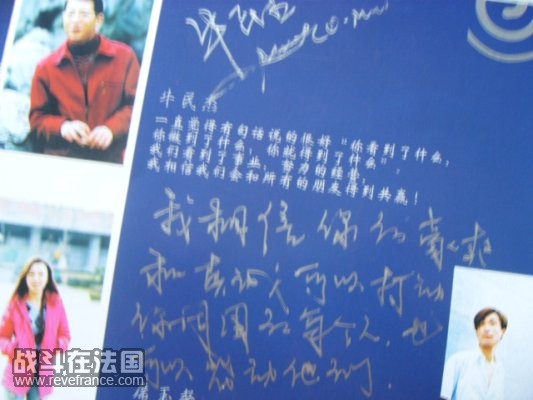 牛民
一直觉得有句话说的很好“你看到了什么，
你做到了什么，你就得到了什么”；
我们看到了事业，努力的经营，
我相信我们会和所有的朋友得到共赢！
我相信你的豪爽
和真 可以打动
你周围的每个人，也
可以 动他们.
玉
战斗在法国
www.revefrance.com